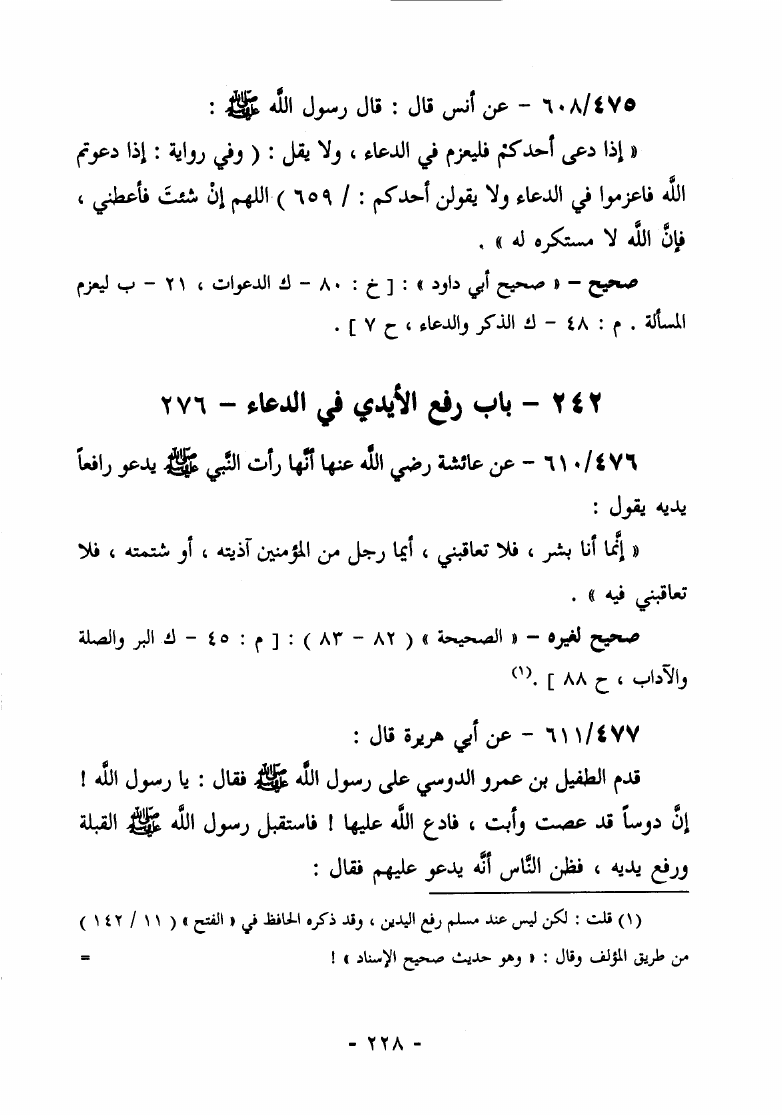 ٦٠٨/٤٧٥ – عن أنس قال : قال رسول اللَّه ﷺ :
« إذا دعى أحدكم فليعزم في الدعاء ، ولا يقل : ( وفي رواية : إذا دعوتم
اللَّه فاعزموا في الدعاء ولا يقولن أحدكم : / ٦٥٩ ) اللهم إنْ شئتَ فأعطني ،
فإنَّ اللَّه لا مستكره له » .
صحيح – « صحيح أبي داود » : [ خ : ٨٠ – ك الدعوات ، ٢١ – ب ليعزم
المسألة . م : ٤٨ – ك الذكر والدعاء ، ح ٧ ] .
٢٤٢ – باب رفع الأيدي في الدعاء – ٢٧٦
٦١٠/٤٧٦ – عن عائشة رضي اللَّه عنها أنَّها رأت النَّبي ﷺ يدعو رافعاً
يديه يقول :
« إنَّما أنا بشر ، فلا تعاقبني ، أيما رجل من المؤمنين آذيته ، أو شتمته ، فلا
تعاقبني فيه » .
صحيح لغيره – « الصحيحة » ( ٨٢ – ٨٣ ) : [ م : ٤٥ – ك البر والصلة
والآداب ، ح ٨٨ ] .(١)
٦١١/٤٧٧ – عن أبي هريرة قال :
قدم الطفيل بن عمرو الدوسي على رسول اللَّه ﷺ فقال : يا رسول اللَّه !
إنَّ دوساً قد عصت وأبت ، فادع اللَّه عليها ! فاستقبل رسول اللَّه ﷺ القبلة
ورفع يديه ، فظن النَّاس أنَّه يدعو عليهم فقال :
(١) قلت : لكن ليس عند مسلم رفع اليدين ، وقد ذكره الحافظ في « الفتح » ( ١١ / ١٤٢ )
من طريق المؤلف وقال : « وهو حديث صحيح الإسناد » ! =
- ٢٢٨ -